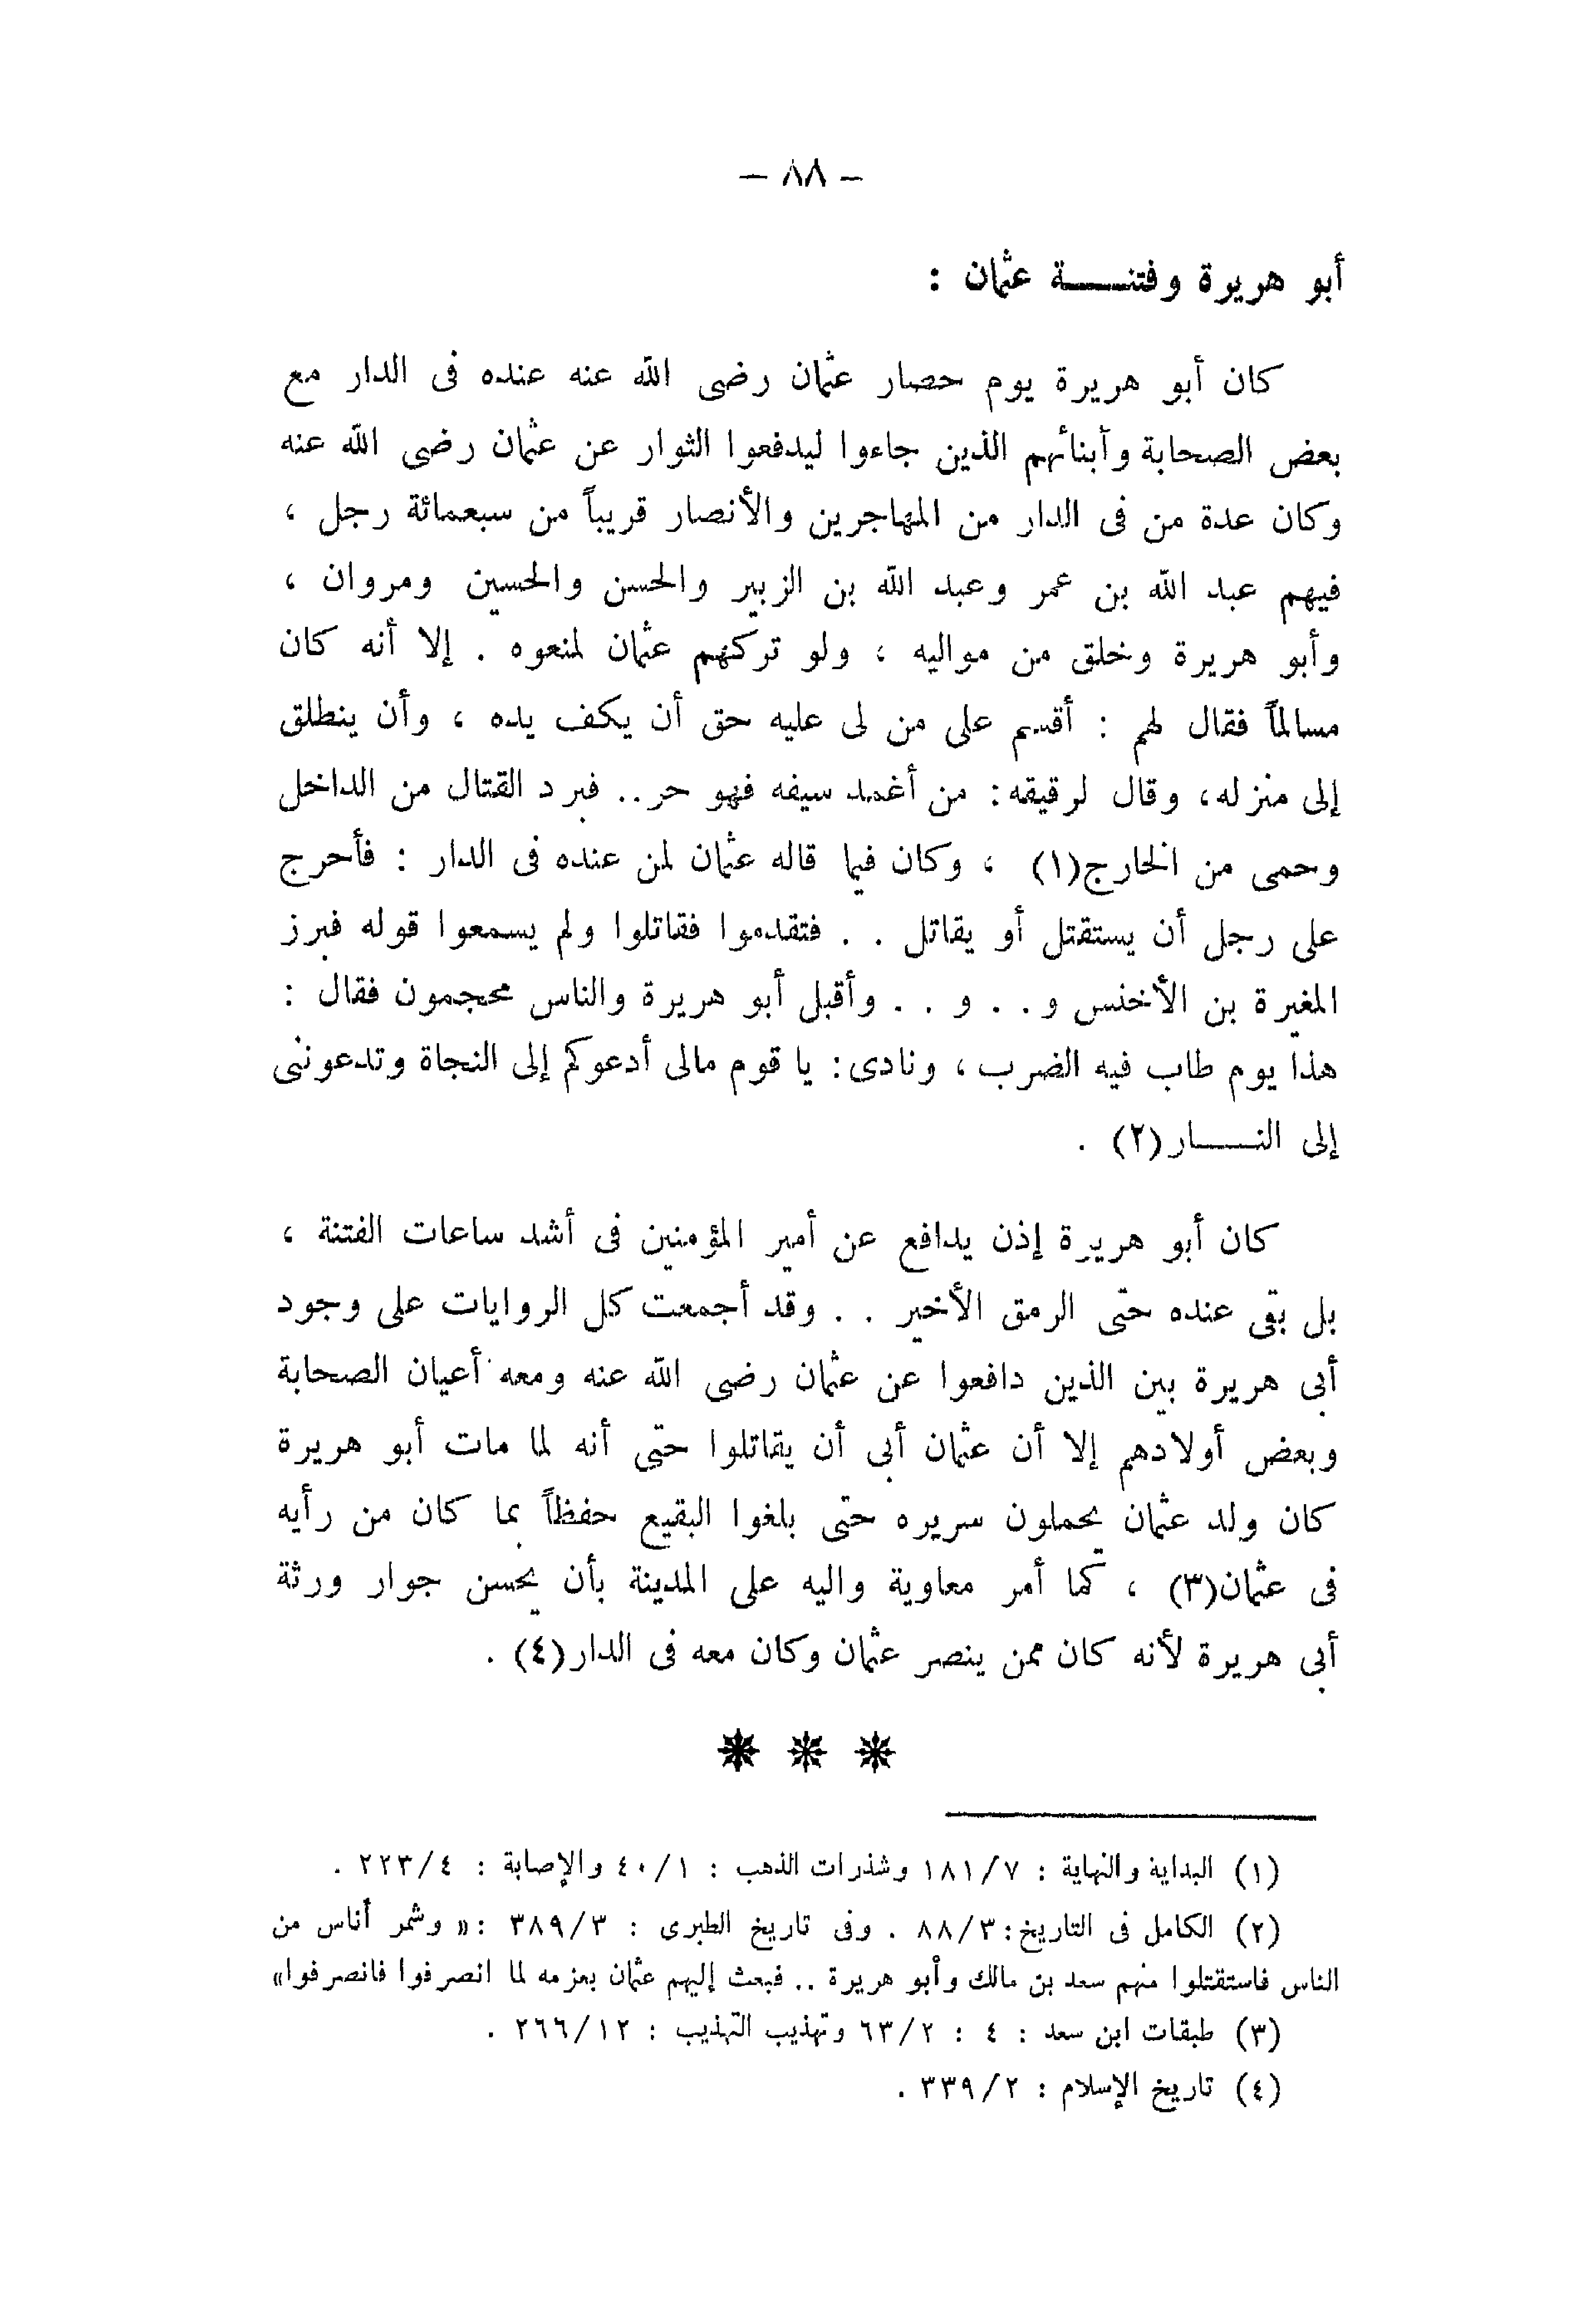 – ٨٨ –
أبو هريرة وفتنــــة عثمان :
كان أبو هريرة يوم حصار عثمان رضى الله عنه عنده فى الدار مع
بعض الصحابة وأبنائهم الذين جاءوا ليدفعوا الثوار عن عثمان رضى الله عنه
وكان عدة من فى الدار من المهاجرين والأنصار قريباً من سبعمائة رجل ،
فيهم عبد الله بن عمر وعبد الله بن الزبير والحسن والحسين ومروان ،
وأبو هريرة وخلق من مواليه ، ولو تركهم عثمان لمنعوه . إلا أنه كان
مسالماً فقال لهم : أقسم على من لى عليه حق أن يكف يده ، وأن ينطلق
إلى منزله، وقال لرقيقه: من أغمد سيفه فهو حر.. فبرد القتال من الداخل
وحمى من الخارج(١) ، وكان فيما قاله عثمان لمن عنده فى الدار : فأحرج
على رجل أن يستقتل أو يقاتل . . فتقدموا فقاتلوا ولم يسمعوا قوله فبرز
المغيرة بن الأخنس و . . و . . وأقبل أبو هريرة والناس محجمون فقال :
هذا يوم طاب فيه الضرب ، ونادى: يا قوم مالى أدعوكم إلى النجاة وتدعوننى
إلى النــــار(٢) .
كان أبو هريرة إذن يدافع عن أمير المؤمنين فى أشد ساعات الفتنة ،
بل بقى عنده حتى الرمق الأخير . . وقد أجمعت كل الروايات على وجود
أبى هريرة بين الذين دافعوا عن عثمان رضى الله عنه ومعه أعيان الصحابة
وبعض أولادهم إلا أن عثمان أبى أن يقاتلوا حتى أنه لما مات أبو هريرة
كان ولد عثمان يحملون سريره حتى بلغوا البقيع حفظاً بما كان من رأيه
فى عثمان(٣) ، كما أمر معاوية واليه على المدينة بأن يحسن جوار ورثة
أبى هريرة لأنه كان ممن ينصر عثمان وكان معه فى الدار(٤) .
(١) البداية والنهاية : ١٨١/٧ وشذرات الذهب : ٤٠/١ والإصابة : ٢٢٣/٤ .
(٢) الكامل فى التاريخ: ٨٨/٣ . وفى تاريخ الطبرى : ٣٨٩/٣ :« وشمر أناس من
الناس فاستقتلوا منهم سعد بن مالك وأبو هريرة .. فبعث إليهم عثمان بعزمه لما انصرفوا فانصرفوا»
(٣) طبقات ابن سعد : ٤ : ٦٣/٢ وتهذيب التهذيب : ٢٦٦/١٢ .
(٤) تاريخ الإسلام : ٣٣٩/٢ .